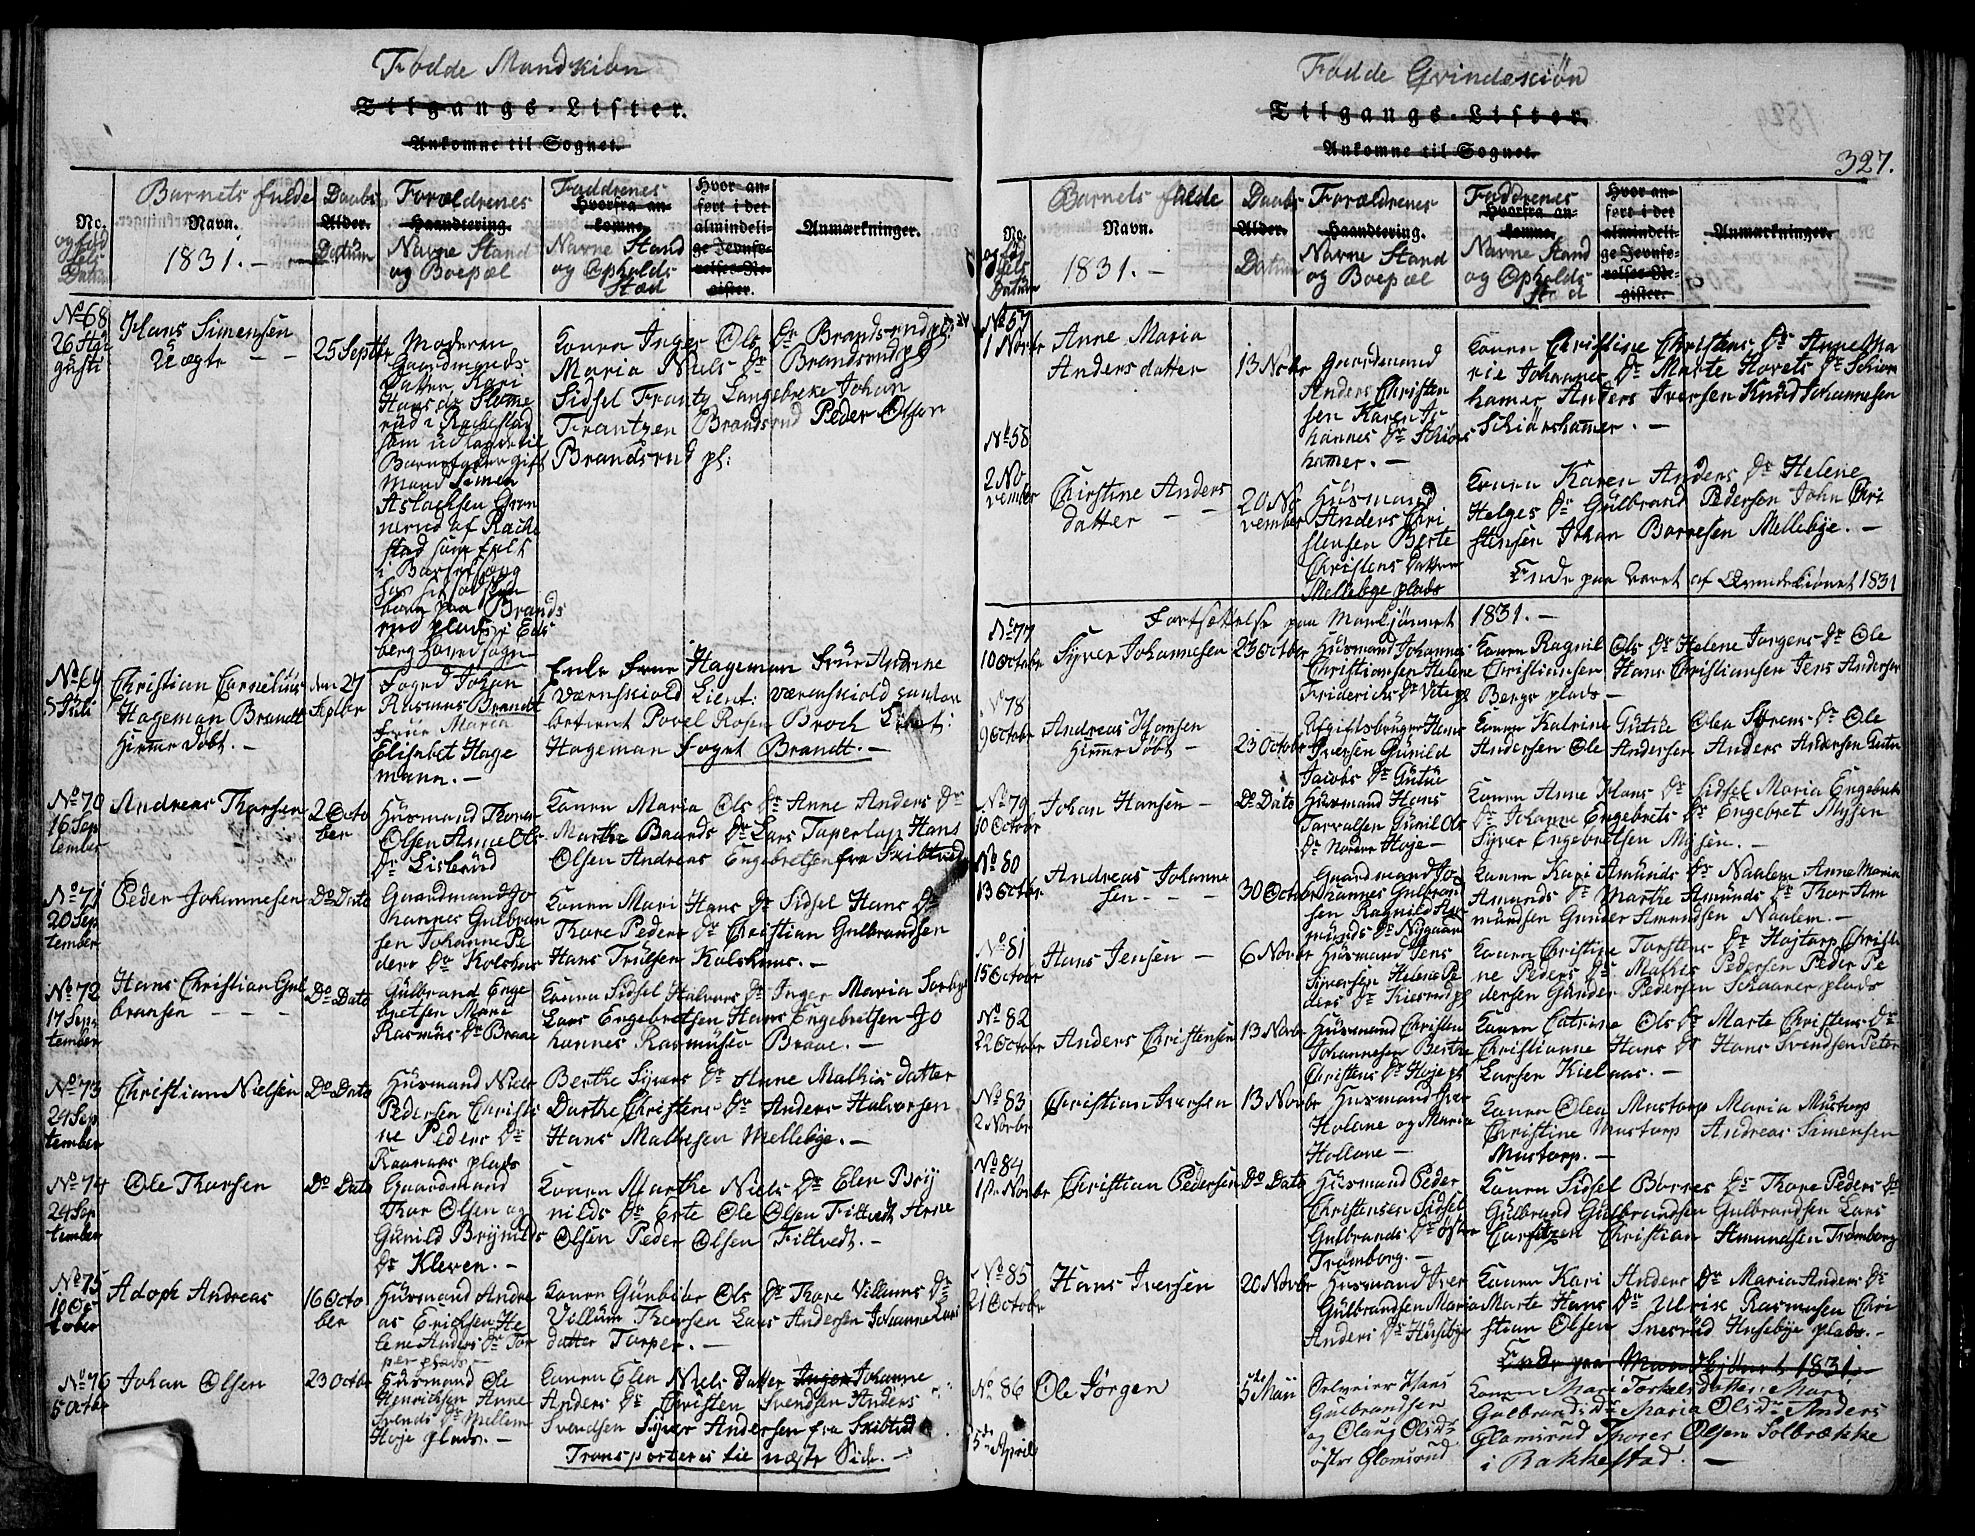 Fødde Mandkiøn
Tilgangs-Lister.
Ankomne til Sognet.
No. og fødsels Datum
Barnets fulde Navn. 1831. -
Daabs Alder. Datum
Forældrenes Haandtering. Navne Stand og Boepæl
Faddrenes Hvorfra ankomne. Navne Stand og Opholds Stæd
Hvor anført i det almindelige Jevnførelses-Register.
Anmærkninger.
No 68
26 Au
gusti
Hans Simensen
Uægte - -
25 Septbr
Moderen
Gaardmands
Datter Kari
Hans dr Slome
rud i Rackestad
som udlagde til
Barnefader gift
Mand Simen
Aslachsen Grøn
nerud af Racke
stad
i Barselseng
paa Brands
rud plads i Eids
berg hovedsogn
Konen Inger Ols Dr Brandsrud pl:
Maria Niels Dr Brandsrud pl
Sidsel Frantz Langebreke Johan
Frantzen Brandsrud Peder Olsen
Brandsrud pl:
No 69
5 Juli
Christian Cornelius
Hageman Brandt
hjemmedøbt. -
den 27
Septber
Foged Johan
Rasmus Brandt
Frue Maria
Elisabet Hage
mann. -
Enke Frue Hageman Frue Andrine
Værnskiold Lieut: Værenskiold
Povel Rosen Broch Lieut:
Hageman Foget Brandt. -
No 70
16 Sep
tember
Andreas Thorsen
2 Octo
ber
Husmand Thor
Olsen Anne Ols
Dr Lislerud
Konen Maria Ols Dr Anne Anders Dr
Marthe Baards Dr Lars Taperlap Hans
Olsen Andreas Engebretsen fra Skibtved
No 71
20 Sep
tember
Peder Johannesen
Do Dato
Gaardmand Jo
hannes Gulbran
sen Johanne Pe
ders Dr Kolshus
Konen Mari Hans Dr Sidsel Hans Dr
Thore Peders Dr Christian Gulbrandsen
Hans Truelsen Kolshuus. -
No 72
17 Sep
tember
Hans Christian Gul
bransen - - -
Do Dato
Gulbrand Enge
bretsen Mari
Rasmus Dr Braae
Konen Sidsel Halvors Dr Inger Maria Sorby
Lars Engebretsen Hans Engebretsen Jo
hannes Rasmusen Braae. -
No 73
24 Sep
tember
Christian Nielsen
Do Dato
Husmand Niels
Pedersen Christi
ne Peders Dr
Raanaas plads
Berthe Syvers Dr Anne Mathis datter
Dorthe Christens Dr Anders Halvorsen
Hans Mathisen Mellebye. -
No 74
24 Sep
tember
Ole Thorsen
Do Dato
Gaardmand
Thor Olsen og
Gunild Brynilds
Dr Kleven. -
Konen Marthe Niels Dr Elen Bry
nilds Dr Erte Ole Olsen Fittvedt Arne
Olsen Peder Olsen Fittvedt. -
No 75
10 Oc
tober
Adoph Andreas
16 Octo
ber
Husmand Andre
as Ericksen He
lene Anders Dr Tor
per plads. -
Konen Gunbiør Ols Dr Thore Villums Dr
Villum Thorsen Lars Andersen Johanne Lars
datter Torper. -
No 76
5 Octbr
Johan Olsen
23 Octbr
Husmand Ole
Henricksen Anne
Svends Dr Mellem
Høje plads. -
Konen Elen Niels Datter Inger Johanne
Anders Dr Christen Svendsen Anders
Svendsen Syver Andersen fra Skibtved
Transporteres til næste Side. -
Fødde Qvindeskiøn
Tilgangs-Lister.
Ankomne til Sognet.
327.
No. og fød sels Datum
Barnets fulde Navn. 1831. -
Daabs Alder. Datum
Forældrenes Haandtering. Navne Stand og Boepæl
Faddrenes Hvorfra ankomne. Navne Stand og Opholds Stæd
Hvor anført i det almindelige Jevnførelses-Register.
Anmærkninger.
No 57
1 Novbr
Anne Maria
Anders datter
13 Novbr
Gaardmand
Anders Christen
sen Karen Jo
hannes Dr Schiørs
hamer. -
Konen Christine Christens Dr Anne Ma
rie Johannes Dr Marte Hovels Dr Schiørs
hamer Anders Iversen Knud Johannesen
Schiørshamer. -
No 58
2 No
vember
Christine Anders
datter - -
20 No
vember
Husmand
Anders Chri
stensen Berte
Christens Datter
Mellebye plads
Konen Karen Anders Dr Helene
Helges Dr Gulbrand Pedersen John Chri
stensen Johan Borresen Mellebye. -
Ende paa Aaret af Qvindekiønet 1831
Fortsettelse paa Mankjønnet 1831. -
No 77
10 Octobr
Syver Johannesen
23 Octbr
Husmand Johannes
Christiansen Helene
Friderichs Dr Vete pl
Konen Ragnil Ols Dr Helene Jorgens Dr Ole
Christiansen Hans Christiansen Jens Andersen
Bergs plads -
No 78
9 Octobr
Andreas Hansen
hjemmedøbt -
23 Octobr
Afgiftsbruger Hans
Iversen Gunild
Jacobs Dr Gutue
Konen Katrine Gutue Olea Sørens Dr Ole
Andersen Ole Andersen Anders Andersen Gutu
No 79
10 Octobr
Johan Hansen -
Do Dato
Husmand Hans
Torvalsen Gunil Ols
Dr Nordre Høje -
Konen Anne Hans Dr Sidsel Maria Engebrets
Dr Johanne Engebrets Dr Engebret Mysen
Syver Engebretsen Mysen. -
No 80
13 Octobr
Andreas Johanne
sen - - -
30 Octobr
Gaardmand Jo
hannes Gulbran
sen Ragnild A
munds Dr Nygaard
Konen Kari Amunds Dr Naalem Anne Maria
Amunds Dr Marthe Amunds Dr Thor Am
undsen Gunder Amundsen Naalem. -
No 81
15 Octobr
Hans Jensen -
6 Novbr
Husmand Jens
Syversen Helene Pe
ders Dr Kiesrud pl
Konen Christine Torstens Dr Hojtorp Christi
ne Peders Dr Mathis Pedersen Peder Pe
dersen Gunder Pedersen Schaarer plads
No 82
22 Octobr
Anders Christensen
13 Novbr
Husmand Christen
Johannesen Berthe
Christens Dr Høje pl
Konen Catrine Ols Dr Marte Christens Dr
Christianne Hans Dr Hans Svendsen Peter
Larsen Kielaas. -
No 83
2 Novbr
Christian Iversen
13 Novbr
Husmand Iver
Holene og Maria
Hollane -
Konen Olea Mustorp Maria Mustorp
Christine Mustorp Andreas Simensen
Mustorp. -
No 84
1ste Novbr
Christian Pedersen
Do Dato
Husmand Peder
Christensen Sidsel
Gulbrands Dr Øster
Trømborg. -
Konen Sidsel Borres Dr Thore Peders Dr
Gulbrand Gulbrandsen Gulbrandsen Lars
Larsen Christian Amundsen Trømborg
No 85
21 Octobr
Hans Iversen
20 Novbr
Husmand Iver
Gulbrandsen Maria
Anders Dr Husebye
Konen Kari Anders Dr Maria Anders Dr
Marte Hans Dr Ulrik Rasmusen Chri
stian Olsen Snesrud Husebye plads. -
Ende paa Mandkjønnet 1831.
No 86
5te April
Ole Jørgen
5te Maii
Selveier Hans
Gulbrandsen
og Olaug Olsdr
østre Glomsrud
Konen Mari Torkelsdatter Mari
Gulbrandsdr Maria Olsdr Anders
Glomsrud Thorer Olsen Solbrække
i Rakkestad. -